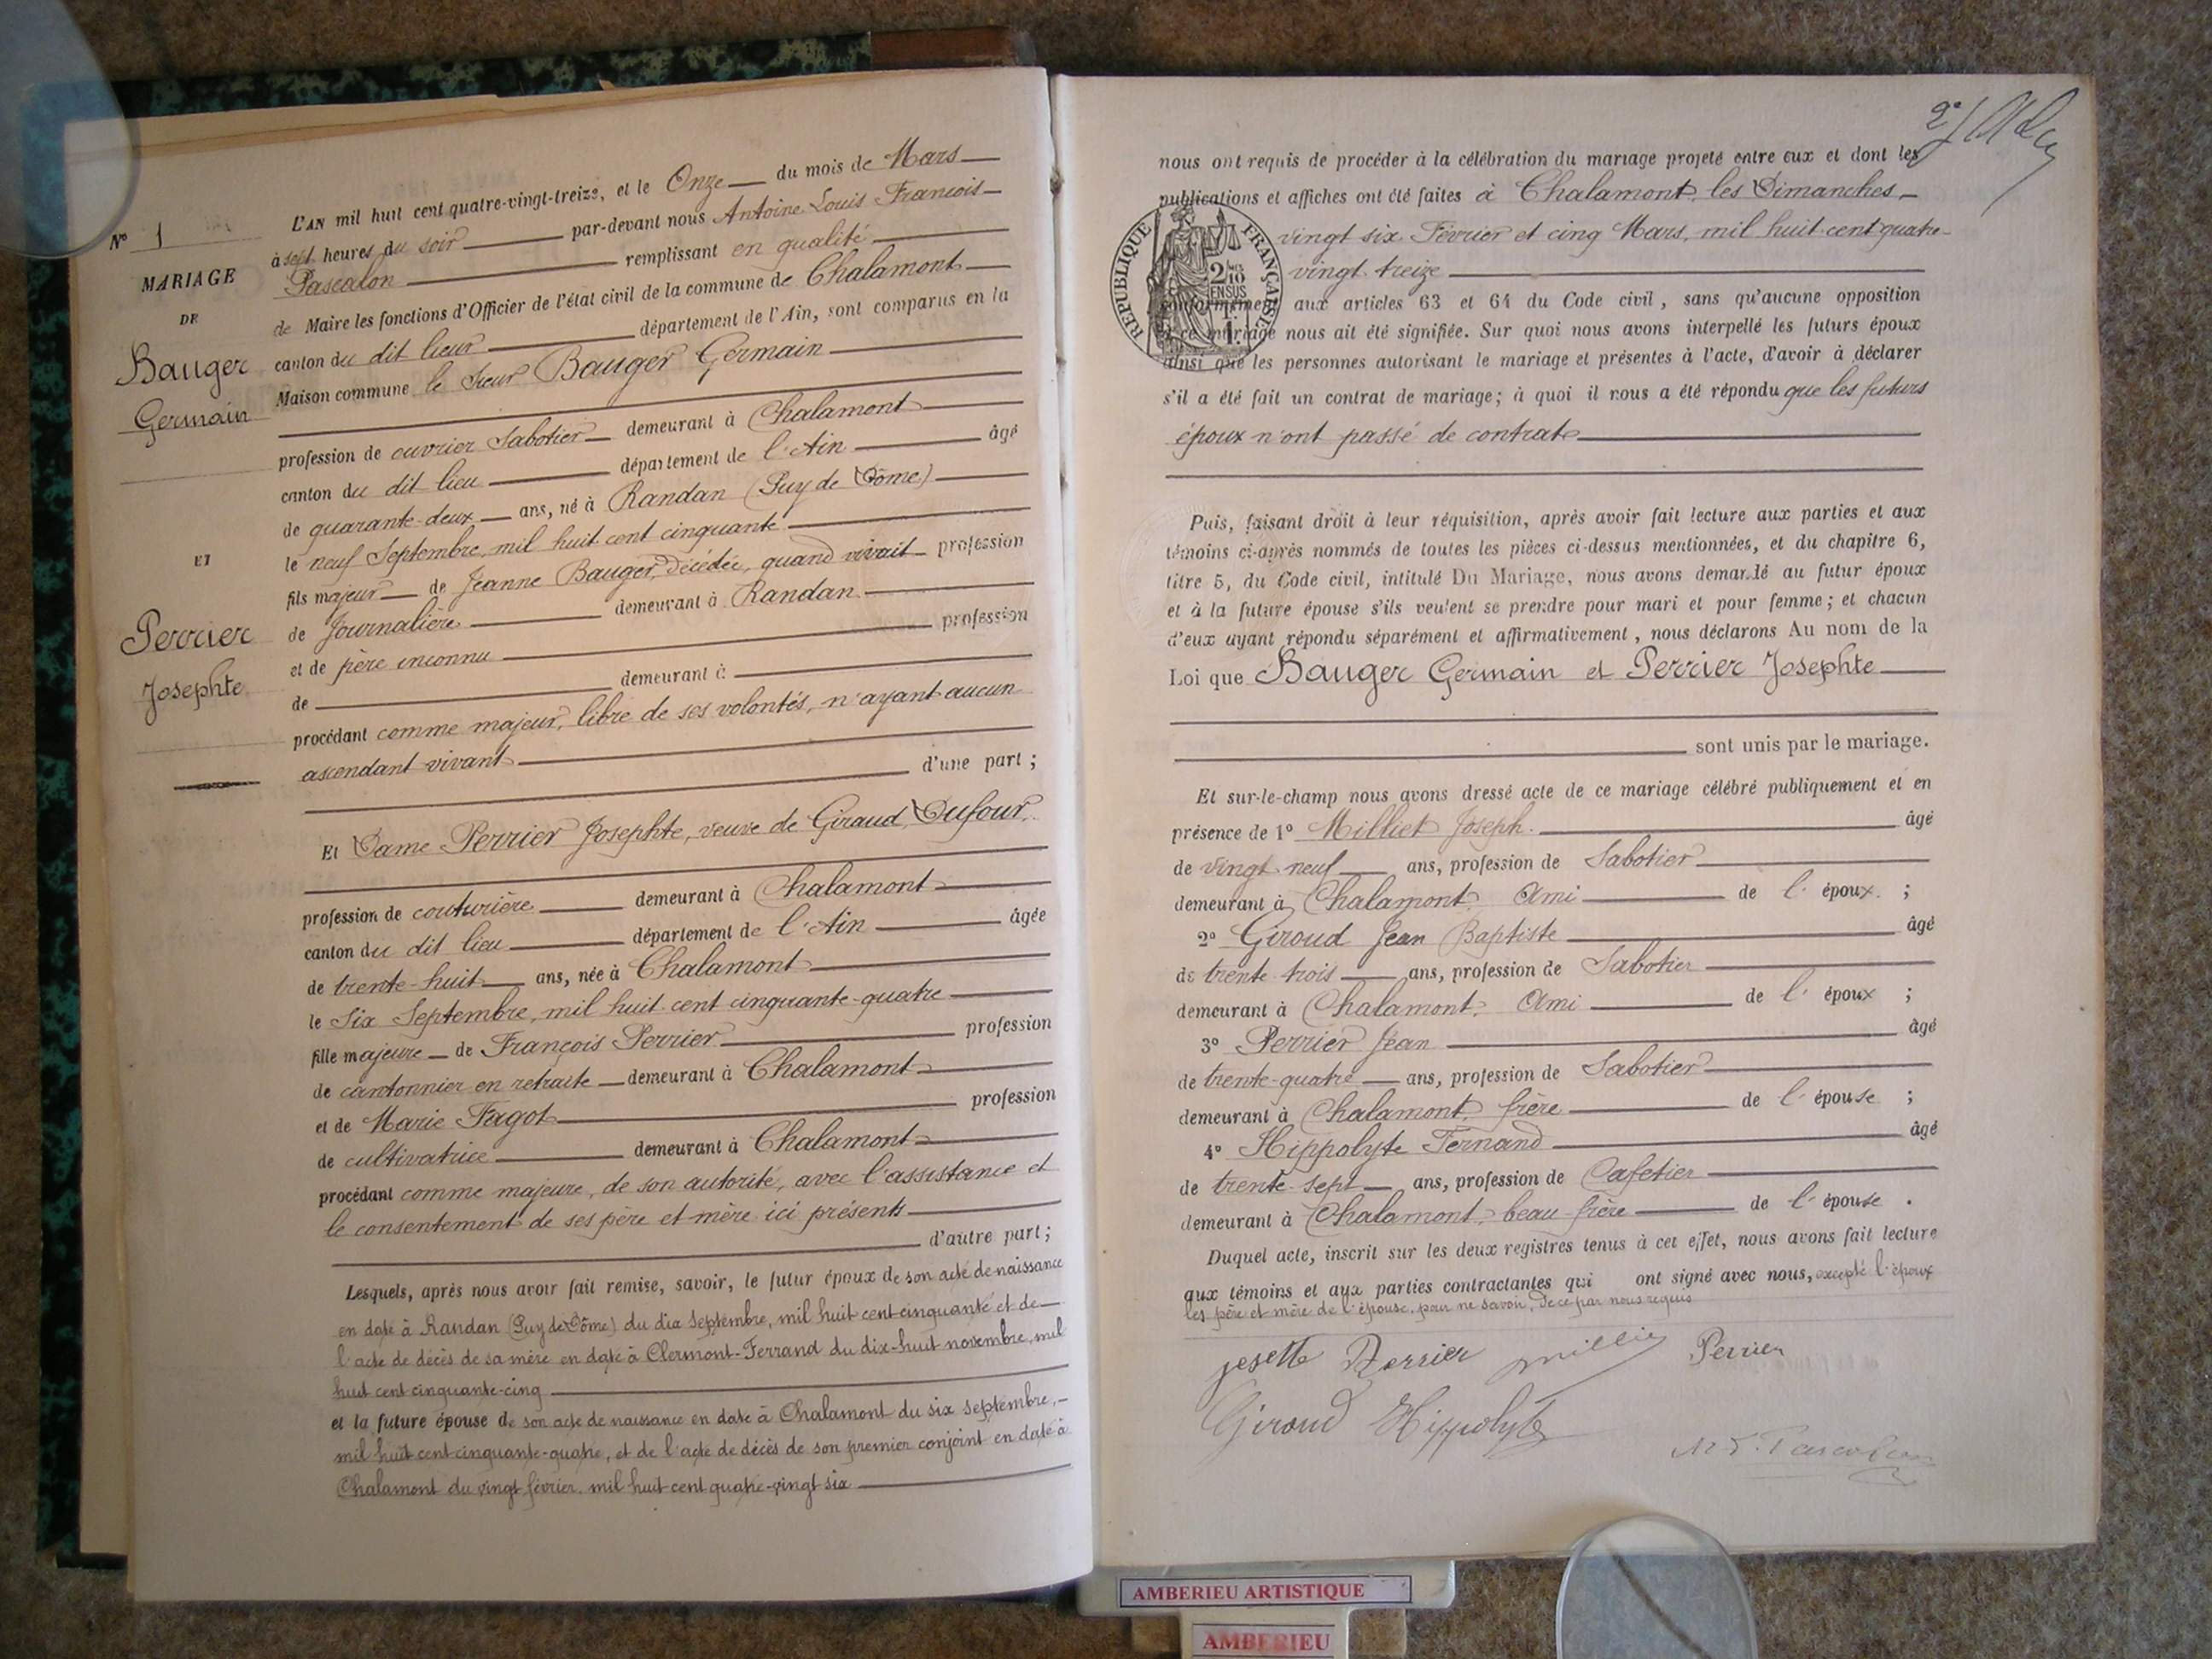 N° 1
MARIAGE
DE
Bauger
Germain
ET
Perrier
Josephte
L'AN mil huit cent quatre-vingt-treize, et le Onze du mois de Mars
à sept heures du soir par-devant nous Antoine Louis François
Pascalon remplissant en qualité
de Maire les fonctions d'Officier de l'état civil de la commune de Chalamont
canton du dit lieu département de l'Ain, sont comparus en la
Maison commune le Sieur Bauger Germain
profession de ouvrier Sabotier demeurant à Chalamont
canton du dit lieu département de l'Ain âgé
de quarante-deux ans, né à Randan (Puy de Dôme)
le neuf Septembre, mil huit cent cinquante
fils majeur de Jeanne Bauger, décédée, quand vivait profession
de Journalière demeurant à Randan
et de père inconnu profession
de demeurant à
procédant comme majeur, libre de ses volontés, n'ayant aucun
ascendant vivant
d'une part ;
Et Dame Perrier Josephte, veuve de Giraud, Dufour,
profession de couturière demeurant à Chalamont
canton du dit lieu département de l'Ain âgée
de trente-huit ans, née à Chalamont
le Six Septembre, mil huit cent cinquante-quatre
fille majeure de François Perrier profession
de cantonnier en retraite demeurant à Chalamont
et de Marie Fagot profession
de cultivatrice demeurant à Chalamont
procédant comme majeure, de son autorité, avec l'assistance et
le consentement de ses père et mère ici présents
d'autre part ;
Lesquels, après nous avoir fait remise, savoir, le futur époux de son acte de naissance
en date à Randan (Puy de Dôme) du dix Septembre, mil huit cent cinquante et de
l'acte de décès de sa mère en date à Clermont-Ferrand du dix-huit novembre, mil
huit cent cinquante-cinq
et la future épouse de son acte de naissance en date à Chalamont du six septembre,
mil huit cent cinquante-quatre, et de l'acte de décès de son premier conjoint en date à
Chalamont du vingt février, mil huit cent quatre-vingt six
2e
nous ont requis de procéder à la célébration du mariage projeté entre eux et dont les
publications et affiches ont été faites à Chalamont, les Dimanches
vingt six Février et cinq Mars, mil huit cent quatre-
vingt treize
RÉPUBLIQUE FRANÇAISE
2 10 EN SUS
conformément aux articles 63 et 64 du Code civil, sans qu'aucune opposition
à ce mariage nous ait été signifiée. Sur quoi nous avons interpellé les futurs époux
ainsi que les personnes autorisant le mariage et présentes à l'acte, d'avoir à déclarer
s'il a été fait un contrat de mariage ; à quoi il nous a été répondu que les futurs
époux n'ont passé de contrat
Puis, faisant droit à leur réquisition, après avoir fait lecture aux parties et aux
témoins ci-après nommés de toutes les pièces ci-dessus mentionnées, et du chapitre 6,
titre 5, du Code civil, intitulé Du Mariage, nous avons demandé au futur époux
et à la future épouse s'ils veulent se prendre pour mari et pour femme ; et chacun
d'eux ayant répondu séparément et affirmativement, nous déclarons Au nom de la
Loi que Bauger Germain et Perrier Josephte
sont unis par le mariage.
Et sur-le-champ nous avons dressé acte de ce mariage célébré publiquement et en
présence de 1° Milliet Joseph. âgé
de vingt neuf ans, profession de Sabotier
demeurant à Chalamont, Ami de l'époux ;
2° Giroud Jean Baptiste âgé
de trente trois ans, profession de Sabotier
demeurant à Chalamont, Ami de l'époux ;
3° Perrier Jean âgé
de trente-quatre ans, profession de Sabotier
demeurant à Chalamont, frère de l'épouse ;
4° Hippolyte Fernand âgé
de trente-sept ans, profession de Cafetier
demeurant à Chalamont, beau-frère de l'épouse .
Duquel acte, inscrit sur les deux registres tenus à cet effet, nous avons fait lecture
aux témoins et aux parties contractantes qui ont signé avec nous, excepté l'époux
les père et mère de l'épouse, pour ne savoir, de ce par nous requis
Josette Perrier Perrier
Giroud Hippolyte
AMBERIEU ARTISTIQUE
AMBERIEU